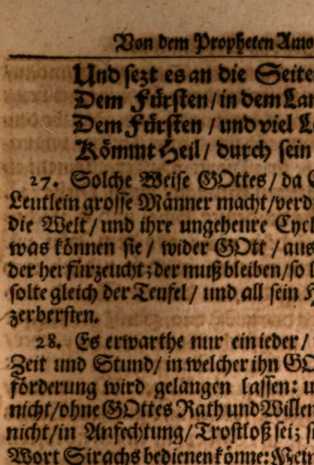 Von dem Propheten Amos
Und sezt es an die Seite
Dem Fürsten / in dem
Dem Fürsten / und viel
Kömmt Heil / durch sein
27. Solche Weise GOttes / da
Leutlein grosse Männer macht /
die Welt / und ihre ungeheure
was können sie / wider GOtt / aus
der herfürzeucht; der muß bleiben / so
solte gleich der Teufel / und all sein
zerbersten.
28. Es erwarthe nur ein ieder /
Zeit und Stund / in welcher ihn
förderung wird gelangen lassen:
nicht / ohne GOttes Rath und Willen
nicht / in Anfechtung / Trostloß sei;
Wort Sirachs bedienen könne: